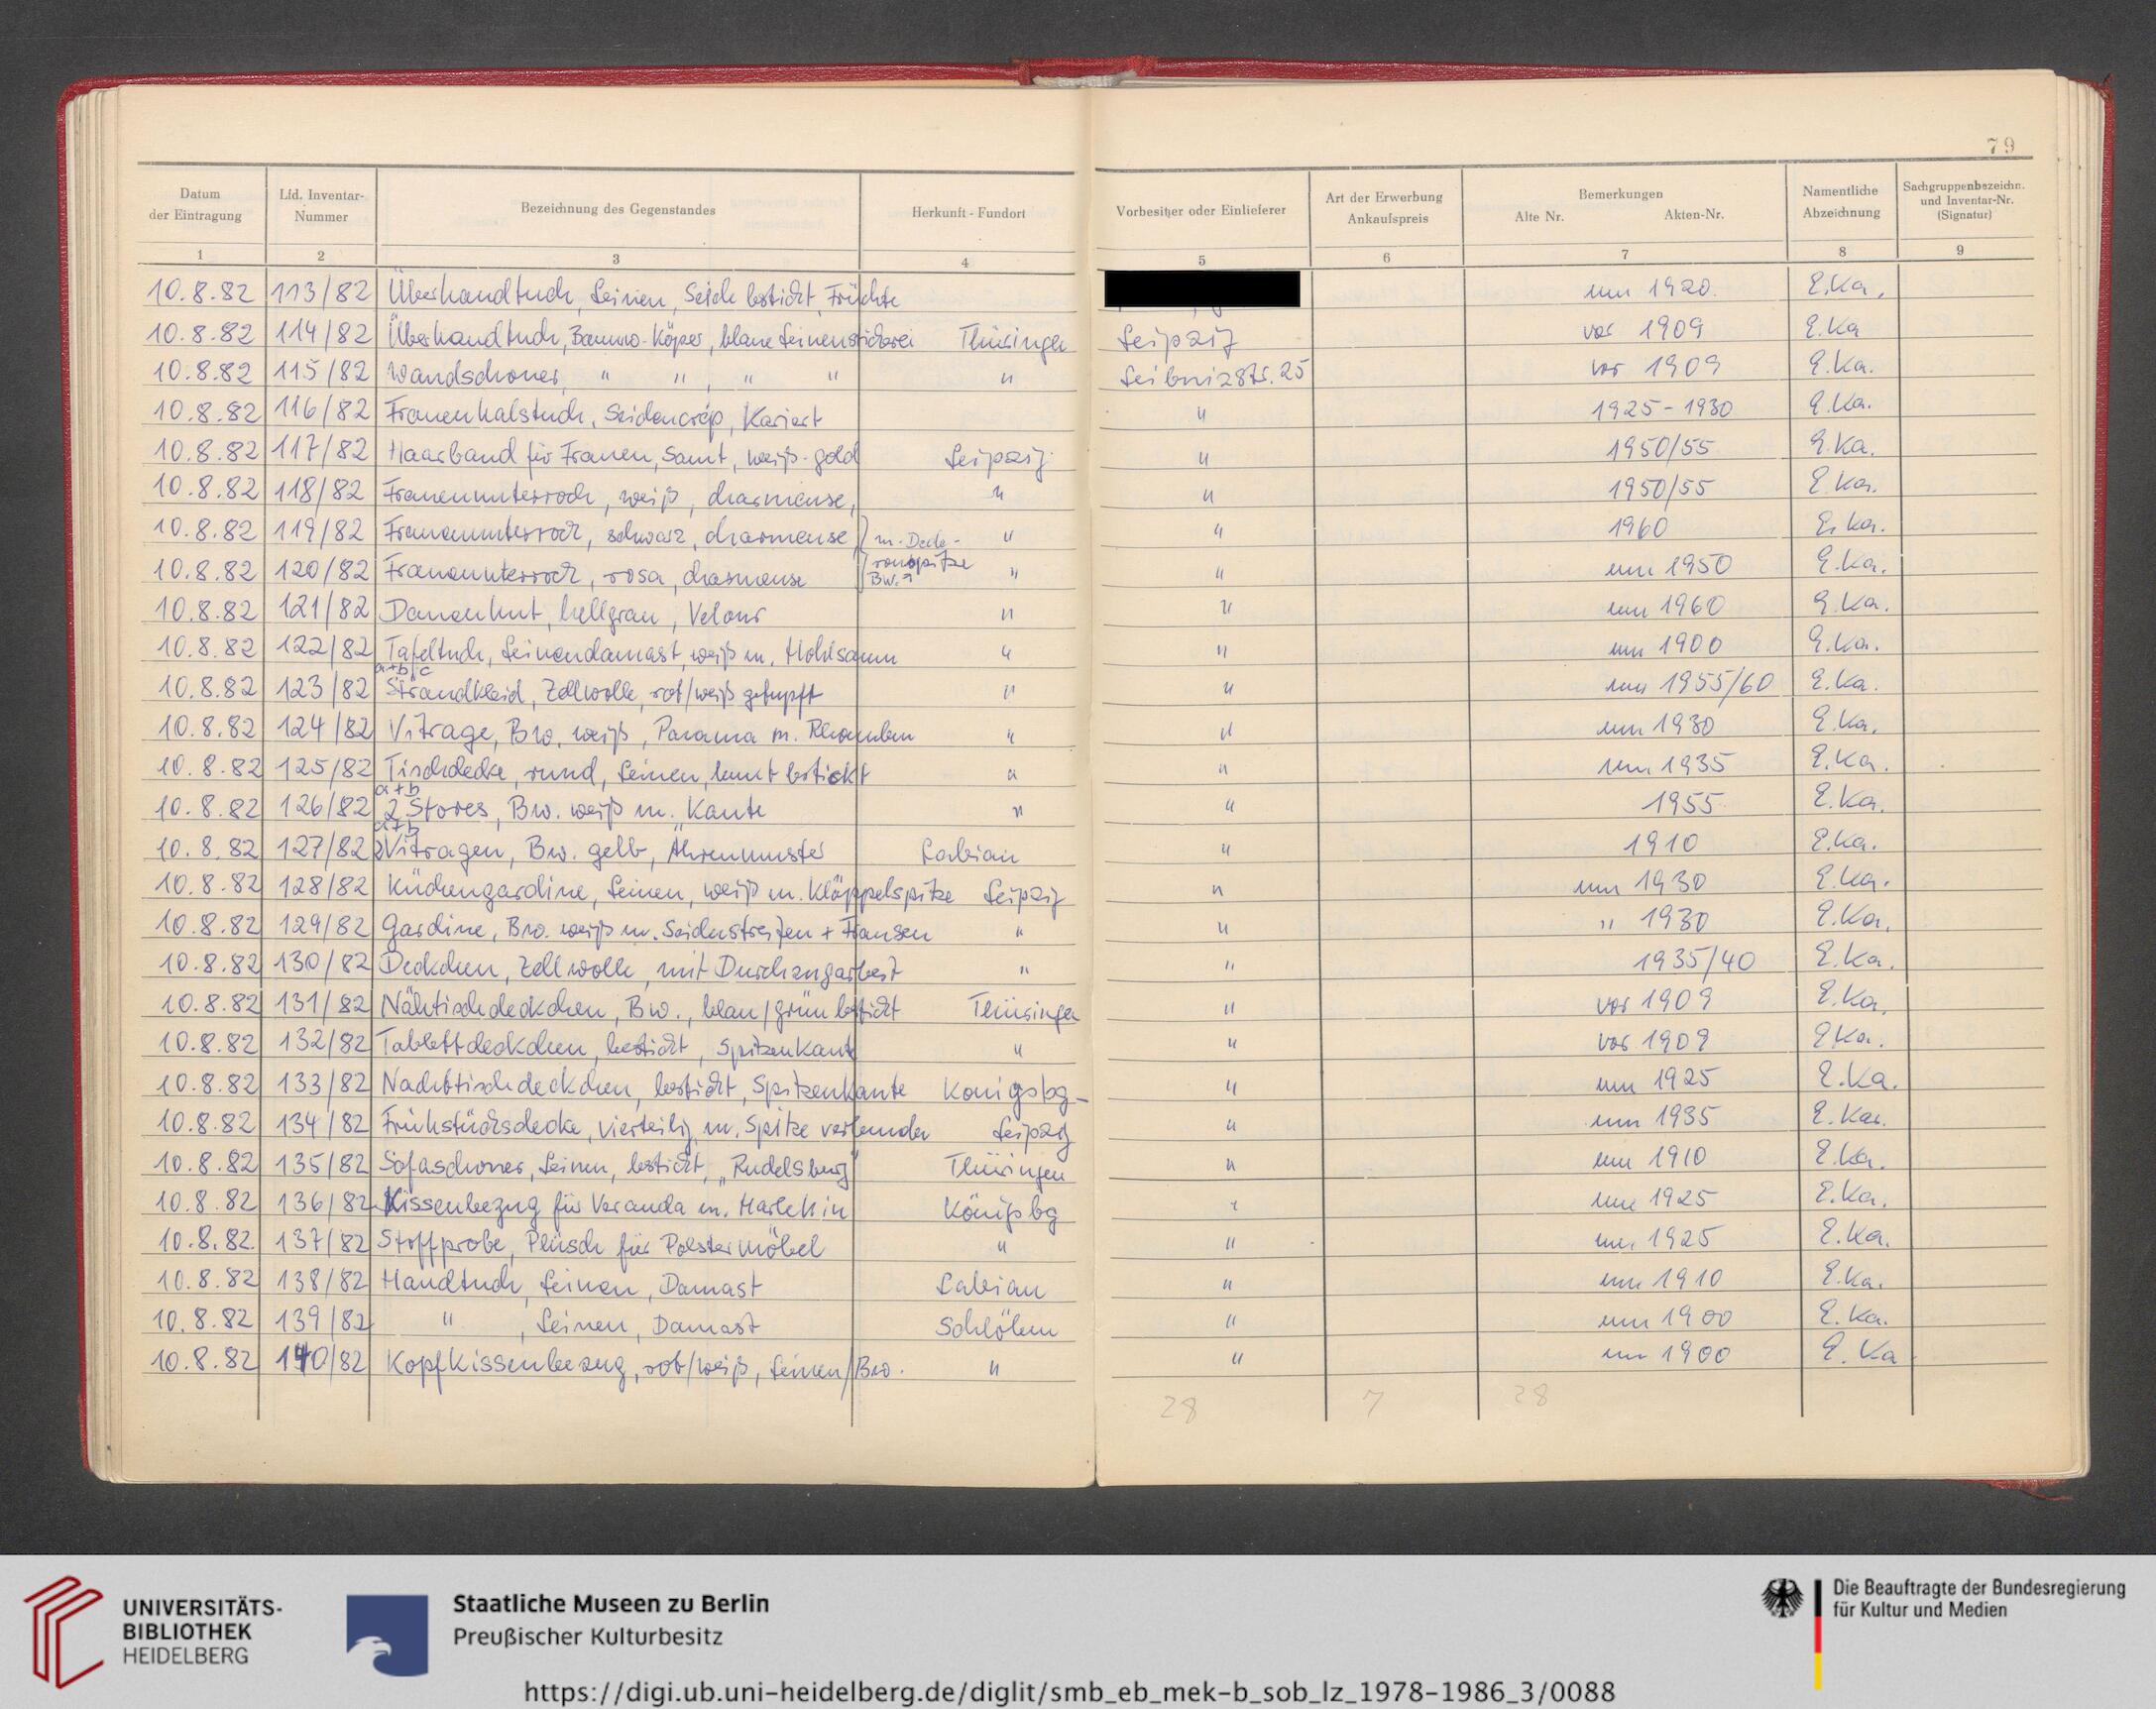 79
Datum der Eintragung | Lfd. Inventar-Nummer | Bezeichnung des Gegenstandes | Herkunft - Fundort | Vorbesitzer oder Einlieferer | Art der Erwerbung Ankaufspreis | Bemerkungen Alte Nr. Akten-Nr. | Namentliche Abzeichnung | Sachgruppenbezeichn. und Inventar-Nr. (Signatur)
1 | 2 | 3 | 4 | 5 | 6 | 7 | 8 | 9
10.8.82 | 113/82 | Überhandtuch, Leinen, Seide bestickt, Früchte | um 1920. | E.Ka.
10.8.82 | 114/82 | Überhandtuch, Baumw.-Köper, blaue Leinenstickerei | Thüringen | Leipzig | vor 1909 | E.Ka
10.8.82 | 115/82 | Wandschoner, " " , " " | " | Leibnizstr. 25 | vor 1909 | E.Ka.
10.8.82 | 116/82 | Frauenhalstuch, Seidencrép, Kariert | " | 1925-1930 | E.Ka.
10.8.82 | 117/82 | Haarband für Frauen, Samt, weiß-gold | Leipzig | " | 1950/55 | E.Ka.
10.8.82 | 118/82 | Frauenunterrock, weiß, charmeuse, | " | " | 1950/55 | E.Ka.
10.8.82 | 119/82 | Frauenunterrock, schwarz, charmeuse } m. Dede- | " | " | 1960 | E.Ka.
10.8.82 | 120/82 | Frauenunterrock, rosa, charmeuse } ronspitze BW.? | " | " | um 1950 | E.Ka.
10.8.82 | 121/82 | Damenhut, hellgrau, Velour | " | " | um 1960 | E.Ka.
10.8.82 | 122/82 | Tafeltuch, Leinendamast, weiß m. Hohlsaum | " | " | um 1900 | E.Ka.
10.8.82 | 123/82 | a+b+c Strandkleid, Zellwolle, rot/weiß getupft | " | " | um 1955/60 | E.Ka.
10.8.82 | 124/82 | Vitrage, Bw. weiß, Panama m. Rhomben | " | " | um 1930 | E.Ka.
10.8.82 | 125/82 | Tischdecke, rund, Leinen, bunt bestickt | " | " | um 1935 | E.Ka.
10.8.82 | 126/82 | a+b 2 Stores, Bw. weiß m. Kante | " | " | 1955 | E.Ka.
10.8.82 | 127/82 | a+b 2 Vitragen, Bw. gelb, Ährenmuster | Labiau | " | 1910 | E.Ka.
10.8.82 | 128/82 | Küchengardine, Leinen, weiß m. Klöppelspitze | Leipzig | " | um 1930 | E.Ka.
10.8.82 | 129/82 | Gardine, Bw. weiß m. Seidenstreifen + Fransen | " | " | " 1930 | E.Ka.
10.8.82 | 130/82 | Deckchen, Zellwolle, mit Durchzugarbeit | " | " | 1935/40 | E.Ka.
10.8.82 | 131/82 | Nähtischdeckchen, Bw., blau/grün bestickt | Thüringen | " | vor 1909 | E.Ka.
10.8.82 | 132/82 | Tablettdeckchen, bestickt, Spitzenkante | " | " | vor 1909 | E.Ka.
10.8.82 | 133/82 | Nachttischdeckchen, bestickt, Spitzenkante | Königsbg- | " | um 1925 | E.Ka.
10.8.82 | 134/82 | Frühstücksdecke, vierteilig, m. Spitze verbunden | Leipzig | " | um 1935 | E.Ka.
10.8.82 | 135/82 | Sofaschoner, Leinen, bestickt, „Rudelsburg" | Thüringen | " | um 1910 | E.Ka.
10.8.82 | 136/82 | Kissenbezug für Veranda m. Harlekin | Königsbg | " | um 1925 | E.Ka.
10.8.82 | 137/82 | Stoffprobe, Plüsch für Polstermöbel | " | " | um 1925 | E.Ka.
10.8.82 | 138/82 | Handtuch, Leinen, Damast | Labiau | " | um 1910 | E.Ka.
10.8.82 | 139/82 | " , Leinen, Damast | Schlöben | " | um 1900 | E.Ka.
10.8.82 | 140/82 | Kopfkissenbezug, rot/weiß, Leinen/Bw. | " | " | um 1900 | E.Ka
28 | 7 | 28
UNIVERSITÄTS-
BIBLIOTHEK
HEIDELBERG
Staatliche Museen zu Berlin
Preußischer Kulturbesitz
Die Beauftragte der Bundesregierung
für Kultur und Medien
https://digi.ub.uni-heidelberg.de/diglit/smb_eb_mek-b_sob_lz_1978-1986_3/0088